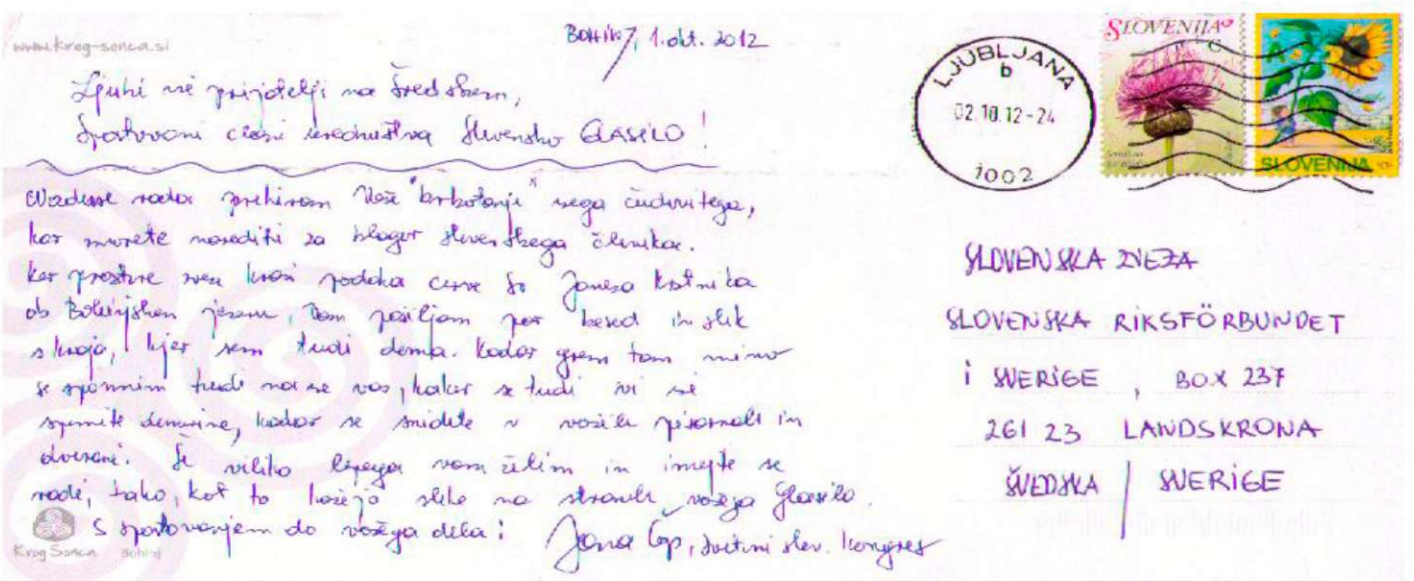 www.krog-sonca.si
Bohinj, 1. okt. 2012
Ljubi vsi prijatelji na Švedskem,
Spoštovani člani uredništva Slovensko GLASILO!
rada prebiram Vaše "brbotanje" vsega čudovitega,
kar morete narediti za blagor slovenskega človeka.
Ker prostore vsa krasi podoba cerkve Sv. Janeza Krstnika
ob Bohinjskem jezeru, Vam pošiljam par besed in slik
s kraja, kjer sem tudi doma. Kadar grem tam mimo
se spomnim tudi na vse vas, kakor se tudi vi vsi
spomnite domovine, kadar se snidete v vaših pisarnah in
dvorani. Še veliko lepega vam želim in imejte se
radi, tako, kot to kažejo slike na straneh vašega Glasila.
S spoštovanjem do vašega dela:
Jana Čop, Svetovni slov. kongres
Krog Sonca Bohinj
LJUBLJANA
b
02.10.12-24
1002
SLOVENIJA
C
A
SLOVENIJA
SLOVENSKA ZVEZA
SLOVENSKA RIKSFÖRBUNDET
i SVERIGE, BOX 237
261 23 LANDSKRONA
ŠVEDSKA / SVERIGE